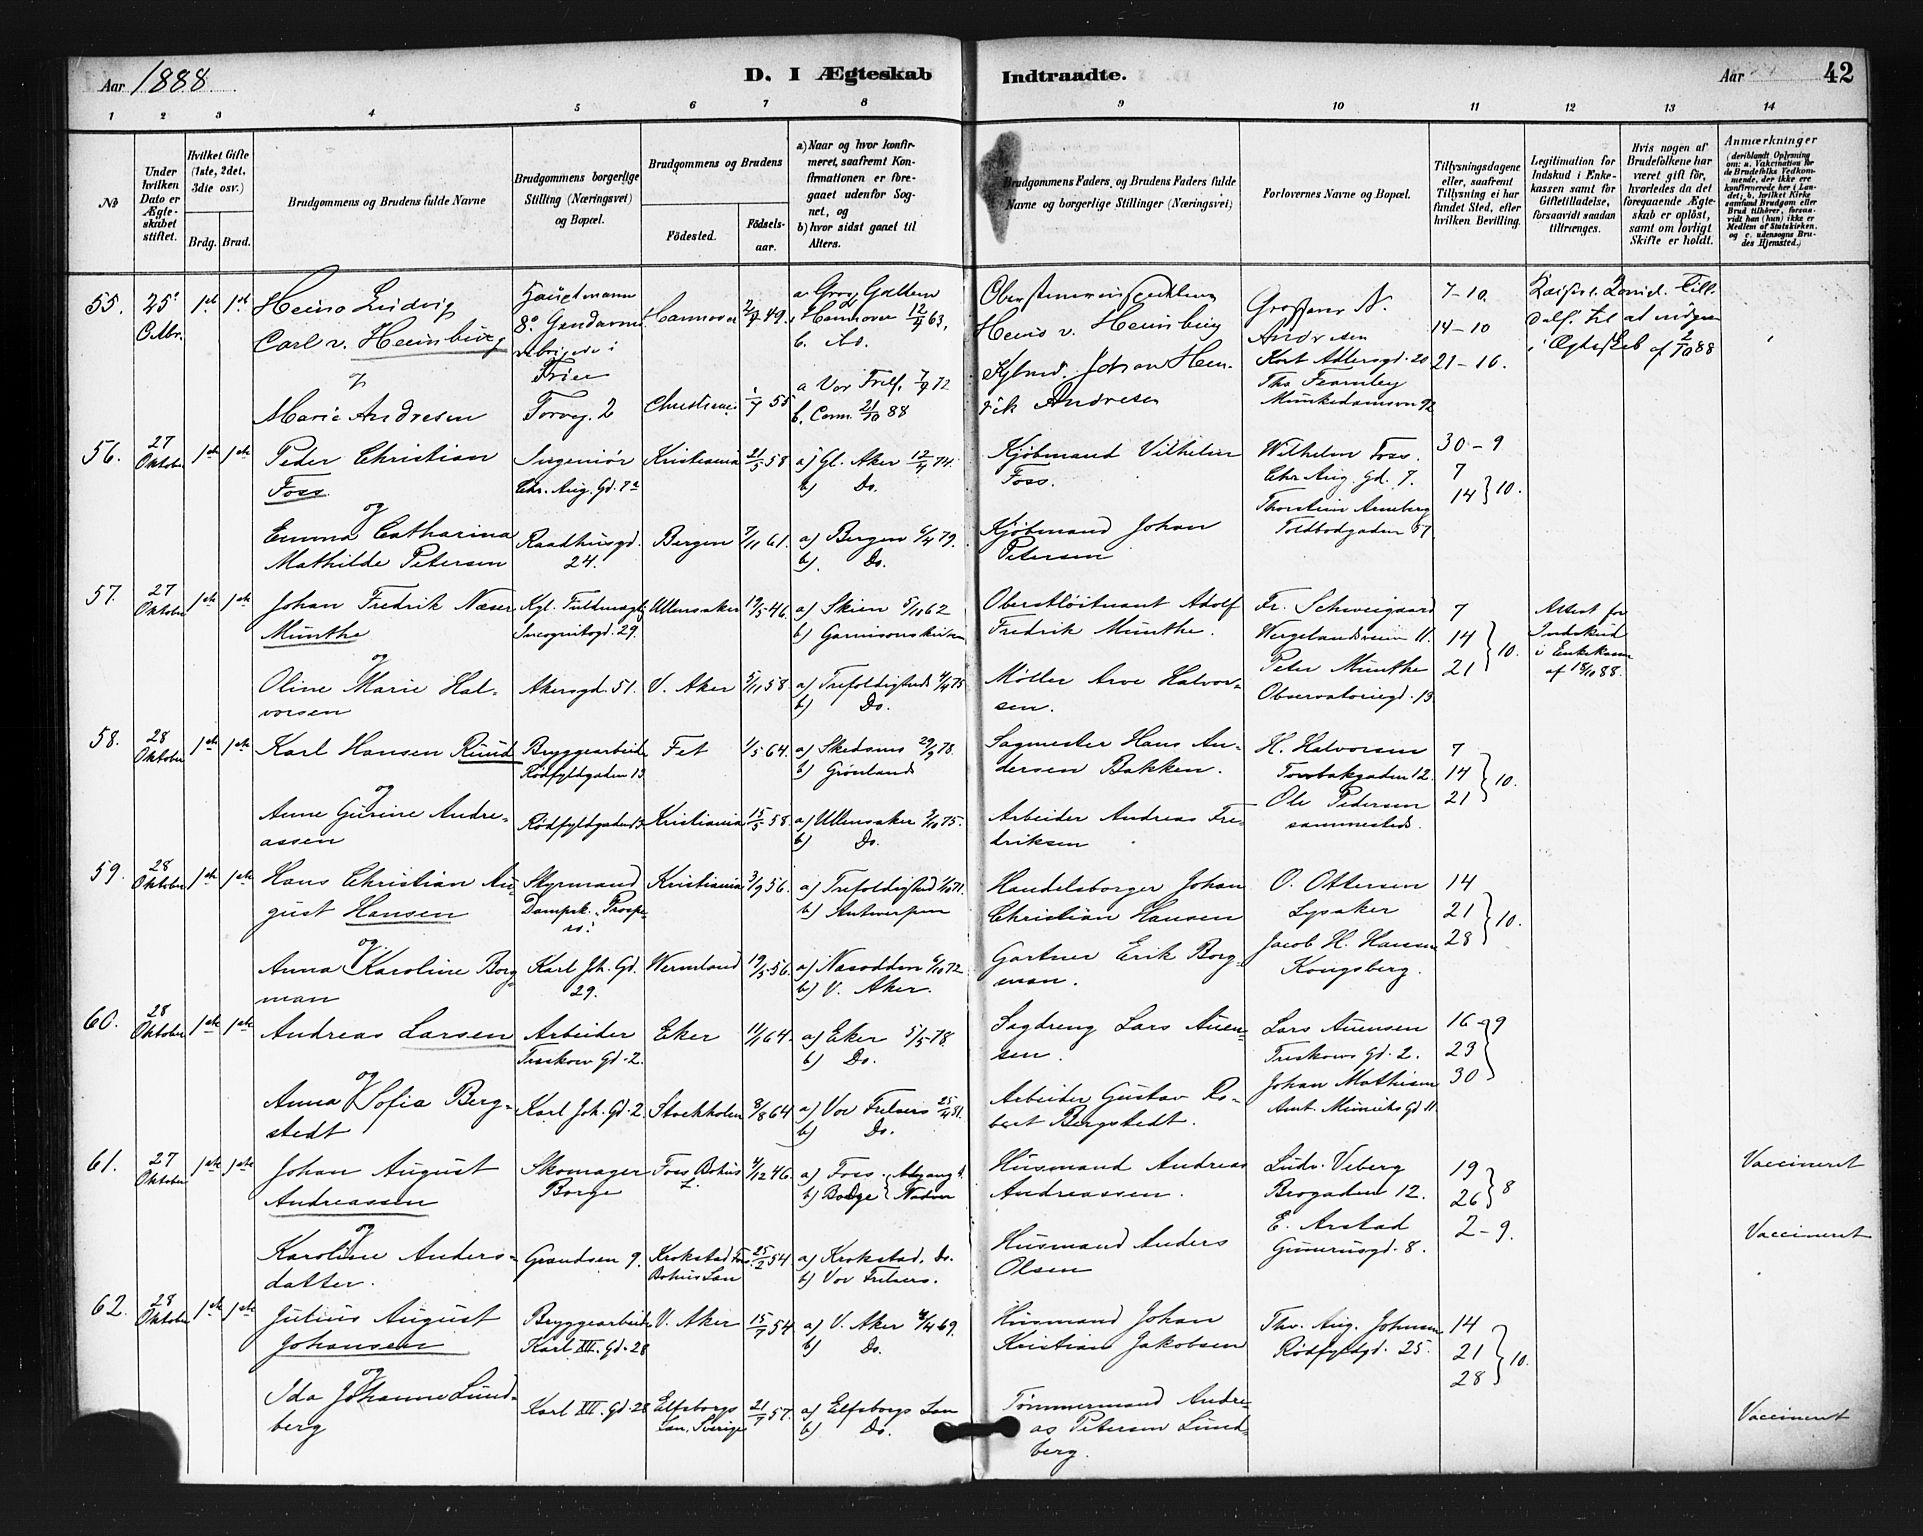 Aar 1888.
D. I Ægteskab Indtraadte.
Aar
42
1 2 3 4 5 6 7 8 9 10 11 12 13 14
No
Under hvilken Dato er Ægteskabet stiftet.
Hvilket Gifte (1ste, 2det, 3die osv.)
Brdg. Brud.
Brudgommens og Brudens fulde Navne
Brudgommens borgerlige Stilling (Næringsvei) og Bopæl.
Brudgommens og Brudens
Fødested. Fødselsaar.
a) Naar og hvor konfirmeret, saafremt Konfirmationen er foregaaet udenfor Sognet, og
b) hvor sidst gaaet til Alters.
Brudgommens Faders og Brudens Faders fulde Navne og borgerlige Stillinger (Næringsvei)
Forlovernes Navne og Bopæl.
Tillysningsdagene eller, saafremt Tillysning ei har fundet Sted, efter hvilken Bevilling.
Legitimation for Indskud i Enkekassen samt for Giftetilladelse, forsaavidt saadan tiltrænges.
Hvis nogen af Brudefolkene har været gift før, hvorledes da det foregaaende Ægteskab er opløst, samt om lovligt Skifte er holdt.
Anmærkninger
(deriblandt Oplysning om: a. Vakcination for de Brudefolks Vedkommende, der ikke ere konfirmerede her i Landet; b. hvilket Kirkesamfund Brudgom eller Brud tilhører, forsaavidt han (hun) ikke er Medlem af Statskirken, og c. udensogns Brudes Hjemsted.)
55. 25 Oktbr. 1st 1st
Heino Ludvig
Carl v. Heimburg
Hauptmann
8. Gendarme
Trier
Hannover 2/7 49.
Hannover 12/4 63,
b. do.
Heino v. Heimburg
Grosserer N.
Andresen
Kort Adlersgd. 20
Ths Fearnley
Munkedamsvn 72
7-10.
14-10
21-10.
i Ægteskab af 2/10 88
og
Marie Andresen
Torvg. 2
Christiania 1/7 55
a Vor Frels. 7/9 72
b. Comm. 21/10 88
Kjbmd. Johan Henrik Andresen
56. 27 Oktober 1ste 1ste
Peder Christian
Foss
Ingeniør
Chr. Aug. Gd. 7a
Kristiania 21/5 58
a) Gl. Aker 12/4 74.
b) Do.
Kjøbmand Vilhelm
Foss.
Wilhelm Foss.
Chr Aug. Gd. 7.
Thorstein Arneberg
Toldbodgaden 37
30-9
7
14 } 10.
og
Emma Catharina
Mathilde Petersen
Raadhusgd. 24.
Bergen 7/11 61.
a) Bergen 6/4 79.
b). Do.
Kjøbmand Johan
Petersen
57. 27 Oktober 1ste 1ste
Johan Fredrik Næser
Munthe
Kgl. Fuldmægtig
Incognitogd. 29.
Ullensaker 19/5 46.
a) Skien 5/10 62
b) Garnisonskirken
Oberstløitnant Adolf
Fredrik Munthe.
Fr. Schweigaard
Wergelandsveien 11.
Peter Munthe
Observatoriegd. 13.
7
14
21 } 10.
Attest for
Indskud
i Enkekassen
af 18/10 88.
og
Oline Marie Halvorsen
Akersgd. 51.
V. Aker 5/11 58.
a) Trefoldigheds 4/4 75
b) Do.
Møller Arve Halvorsen.
58. 28 Oktober 1ste 1ste
Karl Hansen Ruud
Bryggearbeider
Rødfyldgaden 13
Fet 1/5 64.
a) Skedsmo 29/9 78.
b) Grønlands
Sagmester Hans Andersen Bakken.
H. Halvorsen
Torvbakgaden 12.
Ole Pedersen
sammesteds.
7
14
21 } 10.
og
Anne Gurine Andreassen
Rødfyldgaden 13
Kristiania 15/5 58.
a) Ullensaker 3/10 75.
b) Do.
Arbeider Andreas Fredriksen
59. 28 Oktober 1ste 1ste
Hans Christian August Hansen
Styrmand
Kristiania 3/9 56.
a) Trefoldighed 1/10 71.
b) Antwerpen
Handelsborger Johan
Christian Hansen
O. Ottersen
Lysaker
Jacob H. Hansen
Kongsberg.
14
21
28 } 10.
og
Anna Karoline Borgman
Karl Joh. Gd. 29.
Wermland 19/3 56.
a) Nesodden 6/10 72
b) V. Aker.
Gartner Erik Borgman.
60. 28 Oktober 1ste 1ste
Andreas Larsen
Arbeider
Treskow Gd. 2.
Eker 11/1 64.
a) Eker 5/5 78.
b) Do.
Sagdreng Lars Auensen.
Lars Auensen
Treskows Gd. 2.
Johan Mathisen
Amt. Muncks Gd 11.
16
23
30 } 9
og
Anna Sofia Bergstedt
Karl Joh. Gd. 2
Stockholm 8/8 64
a) Vor Frelsers 25/4 81.
b) Do.
Arbeider Gustav Robert Bergstedt.
61. 27 Oktober 1ste 1ste
Johan August
Andreassen
Skomager
Borge
Foss Bohus L. 4/12 46.
a) Foss
b) Borge
Husmand Andreas
Andreassen.
Ludv. Veberg
Brogaden 12.
E. Arstad
Gunerusgd. 8.
19
26 } 8
2-9.
Vaccineret
og
Karoline Andersdatter.
Grændsen 9.
Krokstad Foss
Bohus Län
25/2 54
a) Krokstad. Do.
b) Vor Frelsers.
Husmand Anders
Olsen
Vaccineret
62. 28 Oktober 1ste 1ste
Julius August
Johansen
Bryggearbeider
Karl XII. Gd. 28
V. Aker 15/7 54
a) V. Aker 4/4 69.
b) Do.
Husmand Johan
Kristian Jakobsen
Thv. Aug. Johnsen
Rødfyldgd. 25.
14
21
28 } 10.
og
Ida Johanne Lundberg
Karl XII. Gd. 28
Elfsborgs
Län, Sverige
21/7 57.
a) Elfsborgs Län
b) Do.
Tømmermand Andreas Petersen Lundberg.
Vaccineret